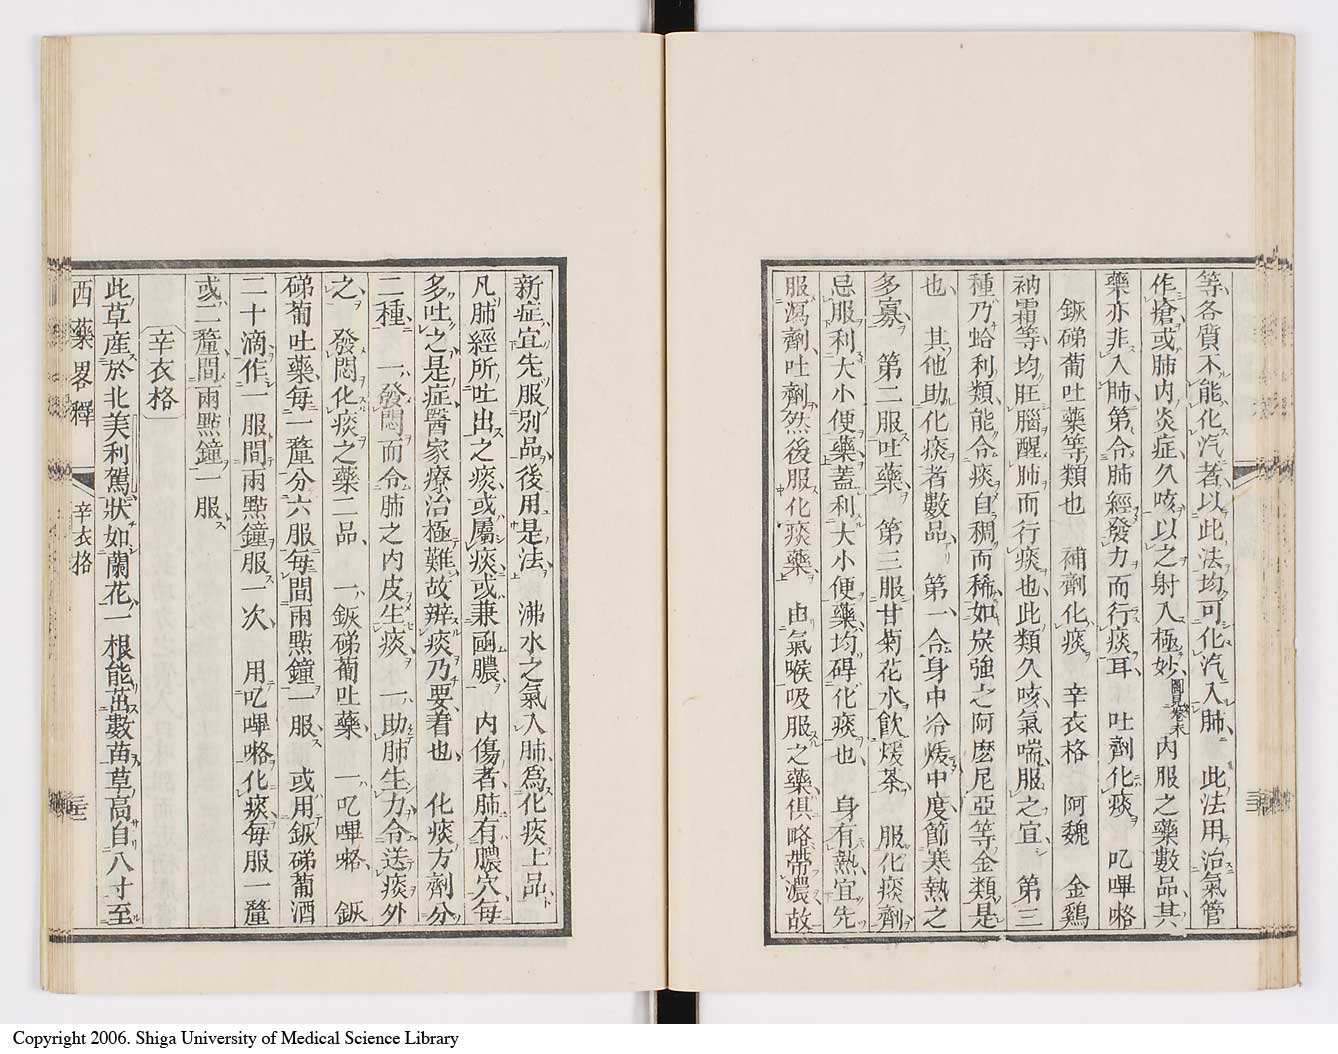 等各質不能化汽者以此法均可化汽入肺 此法用治氣管
作瘡或肺内炎症久咳以之射入極妙圖見卷末内服之藥數品其
藥亦非入肺第合肺經發力而行痰耳 吐劑化痰 叱嗶咯
鈑碲葡吐藥等類也 補劑化痰 辛衣格 阿魏 金鷄
衲霜等均旺腦醒肺而行痰也此類久咳氣喘服之宜 第三
種乃蛤利類能合痰自稠而稀如炭強之阿麽尼亞等金類是
也 其他助化痰者數品 第一合身中冷煖中度節寒熱之
多寡 第二服吐藥 第三服甘菊花水飲煖茶 服化痰劑
忌服利大小便藥蓋利大小便藥均碍化痰也 身有熱宜先
服瀉劑吐劑然後服化痰藥 由氣喉吸服之藥俱略帶濃故
新症宜先服別品後用是法 沸水之氣入肺爲化痰上品
凡肺經所吐出之痰或屬痰或兼凾膿 内傷者肺有膿穴每
多吐之是症醫家療治極難故辨痰乃要着也 化痰方劑分
二種 一發悶而令肺之内皮生痰 一助肺生力令送痰外
之 發悶化痰之藥二品 一鈑碲葡吐藥 一叱嗶咯 鈑
碲葡吐藥每一釐分六服每間兩點鐘一服 或用鈑碲葡酒
二十滴作一服間兩點鐘服一次 用叱嗶咯化痰每服一釐
或二釐間兩點鐘一服
辛衣格
此草産於北美利駕狀如蘭花一根能茁數苗草高自八寸至
西藥畧釋 辛衣格
Copyright 2006. Shiga University of Medical Science Library